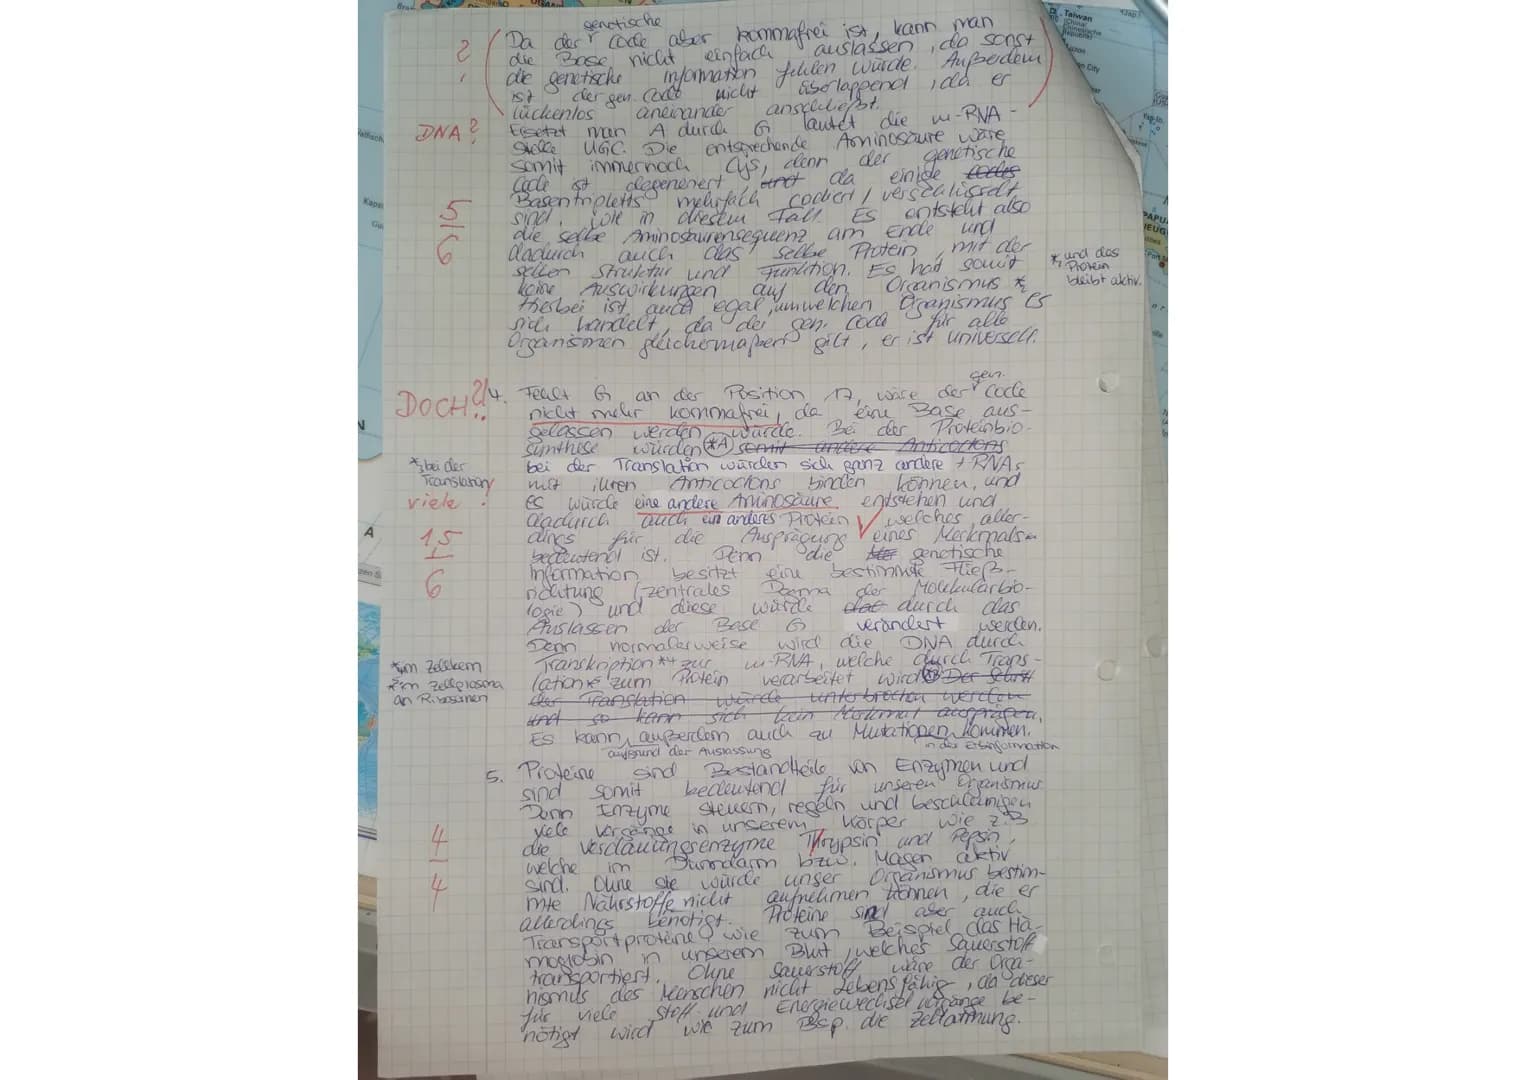 genetische
? ( Da der code aber kommafrei ist, kann man
die Base nicht einfach auslassen, da sonst
! die genetische Information fehlen würde. Außerdem
ist der gen. Code nicht überlappend, da er
lückenlos aneinander anschließt. )
DNA? Ersetzt man A durch G lautet die m-RNA-
Stelle UGC. Die entsprechende Aminosäure wäre
somit immernoch Cys, denn der genetische
Code ist degeneriert, und da einige codes
Basentripletts mehrfach codiert / verschlüsselt
sind, wie in diesem Fall. Es entsteht also
5/6
die selbe Aminosäurensequenz am Ende und
dadurch auch das selbe Protein, mit der
selben Struktur und Funktion. Es hat somit
keine Auswirkungen auf den Organismus *
* und das
Protein
bleibt aktiv.
Hierbei ist auch egal, um welchen Organismus es
sich handelt, da der gen. Code für alle
Organismen gleichermaßen gilt, er ist universell.
gen.
DOCH?!! 4. Fehlt G an der Position 17, wäre der Code
nicht mehr kommafrei, da eine Base aus-
gelassen werden würde. Bei der Proteinbio-
synthese würden *A somit andere Anticodons
*3 bei der
Translation
bei der Translation würden sich ganz andere t-RNAs
mit ihren Anticodons binden können, und
viele !
es würde eine andere Aminosäure entstehen und
dadurch auch ein anderes Protein ✓ welches aller-
1,5/6
dings für die Ausprägung eines Merkmals
bedeutend ist. Denn die genetische
Information besitzt eine bestimmte Fließ-
richtung (zentrales Dogma der Molekularbio-
logie) und diese würde durch das
Auslassen der Base G verändert werden.
Denn normalerweise wird die DNA durch
*4 im Zellkern
Transkription *4 zur m-RNA, welche durch Trans-
* im Zellplasma
an Ribosomen
lation * zum Protein verarbeitet wird. Der Schritt
der Translation würde unterbrochen werden
und so kann sich kein Merkmal ausprägen.
Es kann, außerdem auch zu Mutationen kommen.
aufgrund der Auslassung
in der Erbinformation
5. Proteine sind Bestandteile von Enzymen und
sind somit bedeutend für unseren Organismus.
Denn Enzyme steuern, regeln und beschleunigen
viele Vorgänge in unserem Körper wie z.B
4/4
die Verdauungsenzyme Thrypsin und Pepsin,
welche im Dünndarm bzw. Magen aktiv
sind. Ohne sie würde unser Organismus bestim-
mte Nährstoffe nicht aufnehmen können, die er
allerdings benötigt. Proteine sind aber auch
Transportproteine, wie zum Beispiel das Hä-
moglobin in unserem Blut, welches Sauerstoff
transportiert. Ohne Sauerstoff wäre der Orga-
nismus des Menschen nicht Lebensfähig, da dieser
für viele Stoff- und Energiewechselvorgänge be-
nötigt wird wie zum Bsp. die Zellatmung.
Taiwan